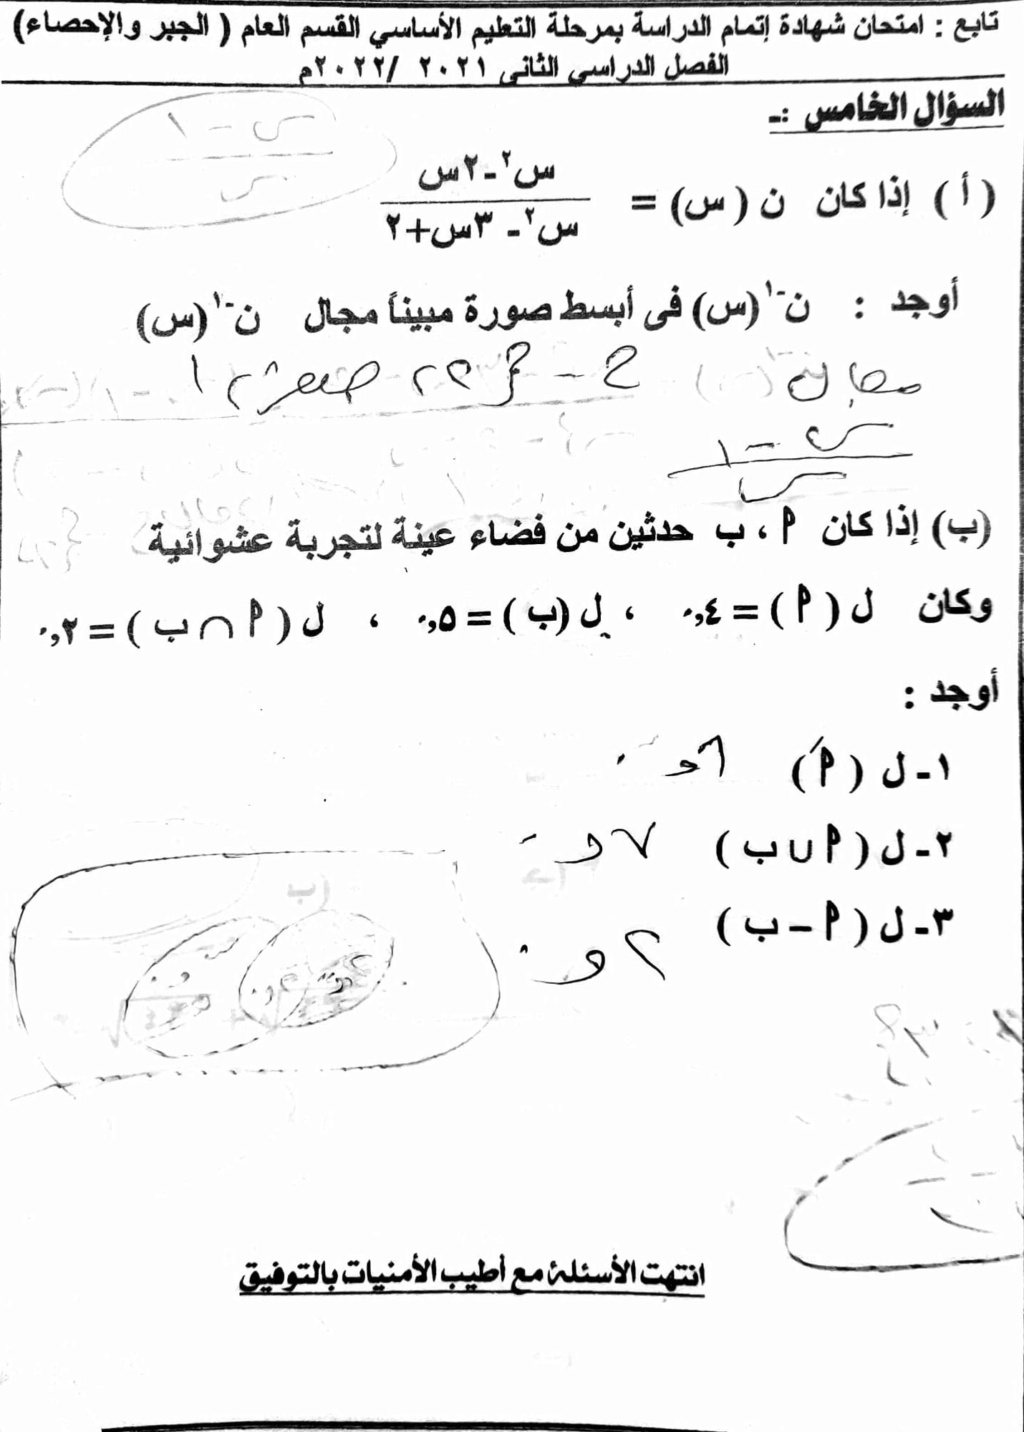 تابع : امتحان شهادة إتمام الدراسة بمرحلة التعليم الأساسي القسم العام ( الجبر والإحصاء)
الفصل الدراسي الثانى ٢٠٢١ /٢٠٢٢م
السؤال الخامس :ـ
س - ١
س
( أ ) إذا كان ن ( س) = س٢ـ ٢س
س٢ـ ٣س+٢
أوجد : ن-١(س) فى أبسط صورة مبيناً مجال ن-١(س)
مجال ح - { ٢ ٢ صفر ٢ ١
س - ١
س
(ب) إذا كان ٩ ، ب حدثين من فضاء عينة لتجربة عشوائية
وكان ل ( ٩ ) = ٠,٤ ، ل (ب ) = ٠,٥ ، ل ( ٩ ∩ ب ) = ٠,٢
أوجد :
١ـ ل ( ٩َ) ٦و٠
٢ـ ل ( ٩ ∪ ب ) ٧و٠
٣ـ ل ( ٩ – ب ) ٢و٠
انتهت الأسئلة مع أطيب الأمنيات بالتوفيق